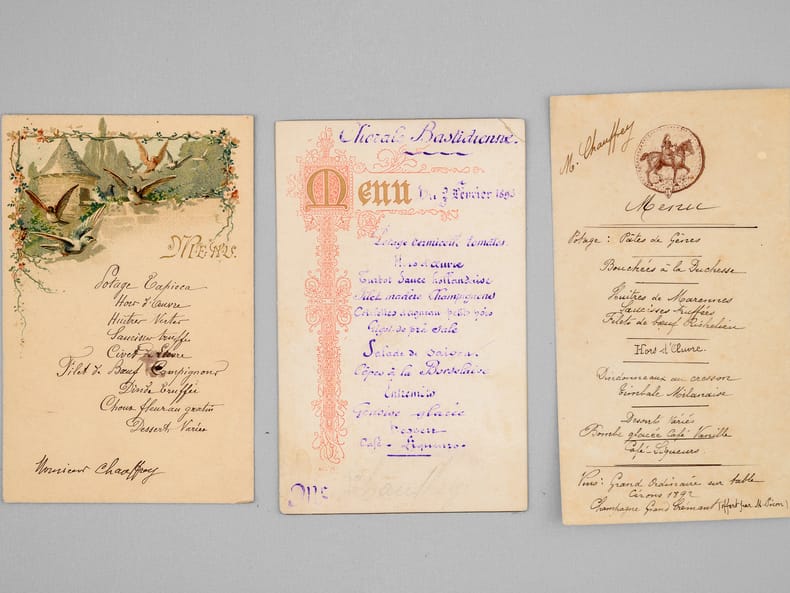 MENU
Potage Tapioca
Hors d'Œuvre
Huitres Vertes
Saucisses truffées
Civet de Lièvre
Filet de Bœuf Compignons
Dinde Truffée
Choux fleur au gratin
Desserts Variés
Monsieur Chauffrey
Morale Bastidienne.
Menu
Du 3 Février 189
Potage vermicelle tomates
Hors d'œuvre
Turbot Sauce hollandaise
Filet madère Champignons
Côtelettes d'agneau petits pois
Gigot de pré salé
Salade de saison
Cèpes à la Bordelaise
Entremets
Génoise glacée
Dessert
Café - Liqueurs
Mr Chauffrey
M. Chauffrey
Menu
Potage : Pâtes de Gênes
Bouchées à la Duchesse
Huîtres de Marennes
Saucisses truffées
Filets de bœuf Richelieu
Hors d'Œuvre.
Dindonneaux au cresson
Timbale Milanaise
Desserts Variés
Bombe glacée Café Vanille
Café - Liqueurs.
Vins : Grand Ordinaire sur table
Cérons 1892
Champagne Grand Crémant (offert par M.